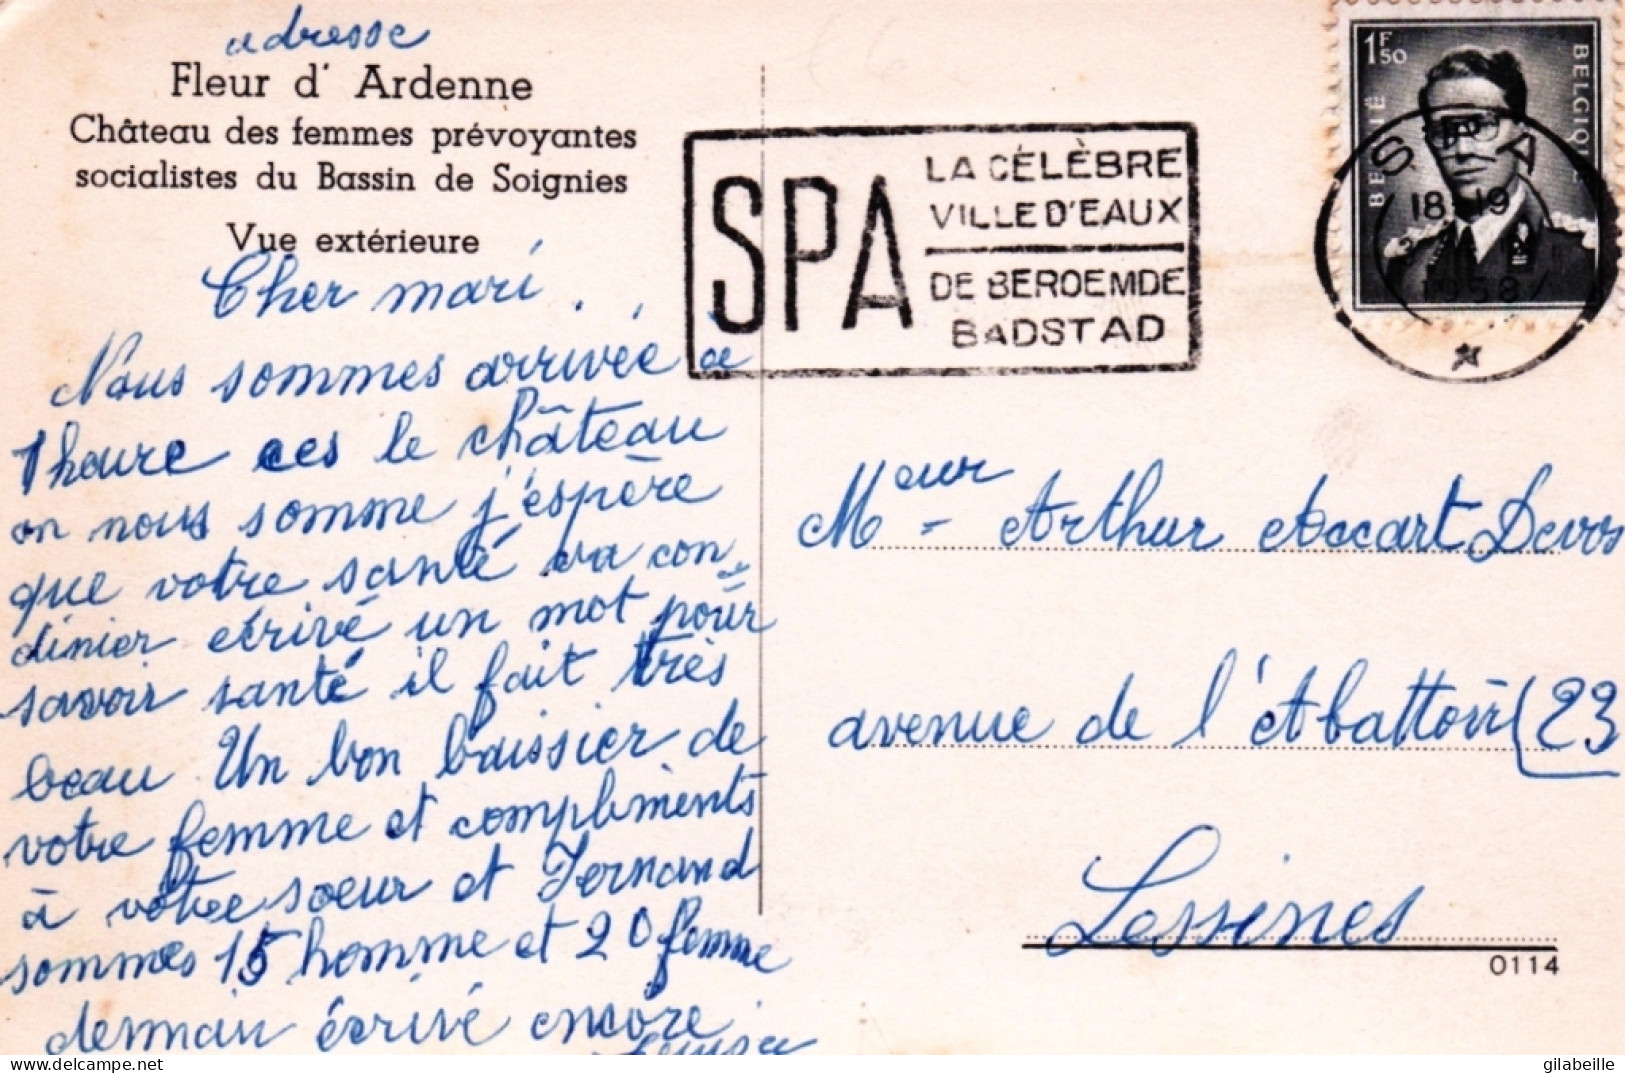 adresse
Fleur d' Ardenne
Château des femmes prévoyantes
socialistes du Bassin de Soignies
Vue extérieure
Cher mari . .
Nous sommes arrivée à
1 heure ces le château
on nous somme j'espère
que votre santé va con
dinier ecrivé un mot pour
savoir santé il fait très
beau Un bon baissier de
votre femme et compliments
à votre soeur et Fernand
sommes 15 homme et 20 femme
demain écrivé encore
SPA
LA CÉLÈBRE
VILLE D'EAUX
DE BEROEMDE
BADSTAD
1F50
BELGIË
BELGIQUE
SPA
18-19
1958
Meur - Arthur Accart Devos
avenue de l'Abattoir (23
Lessines
0114
gilabeille